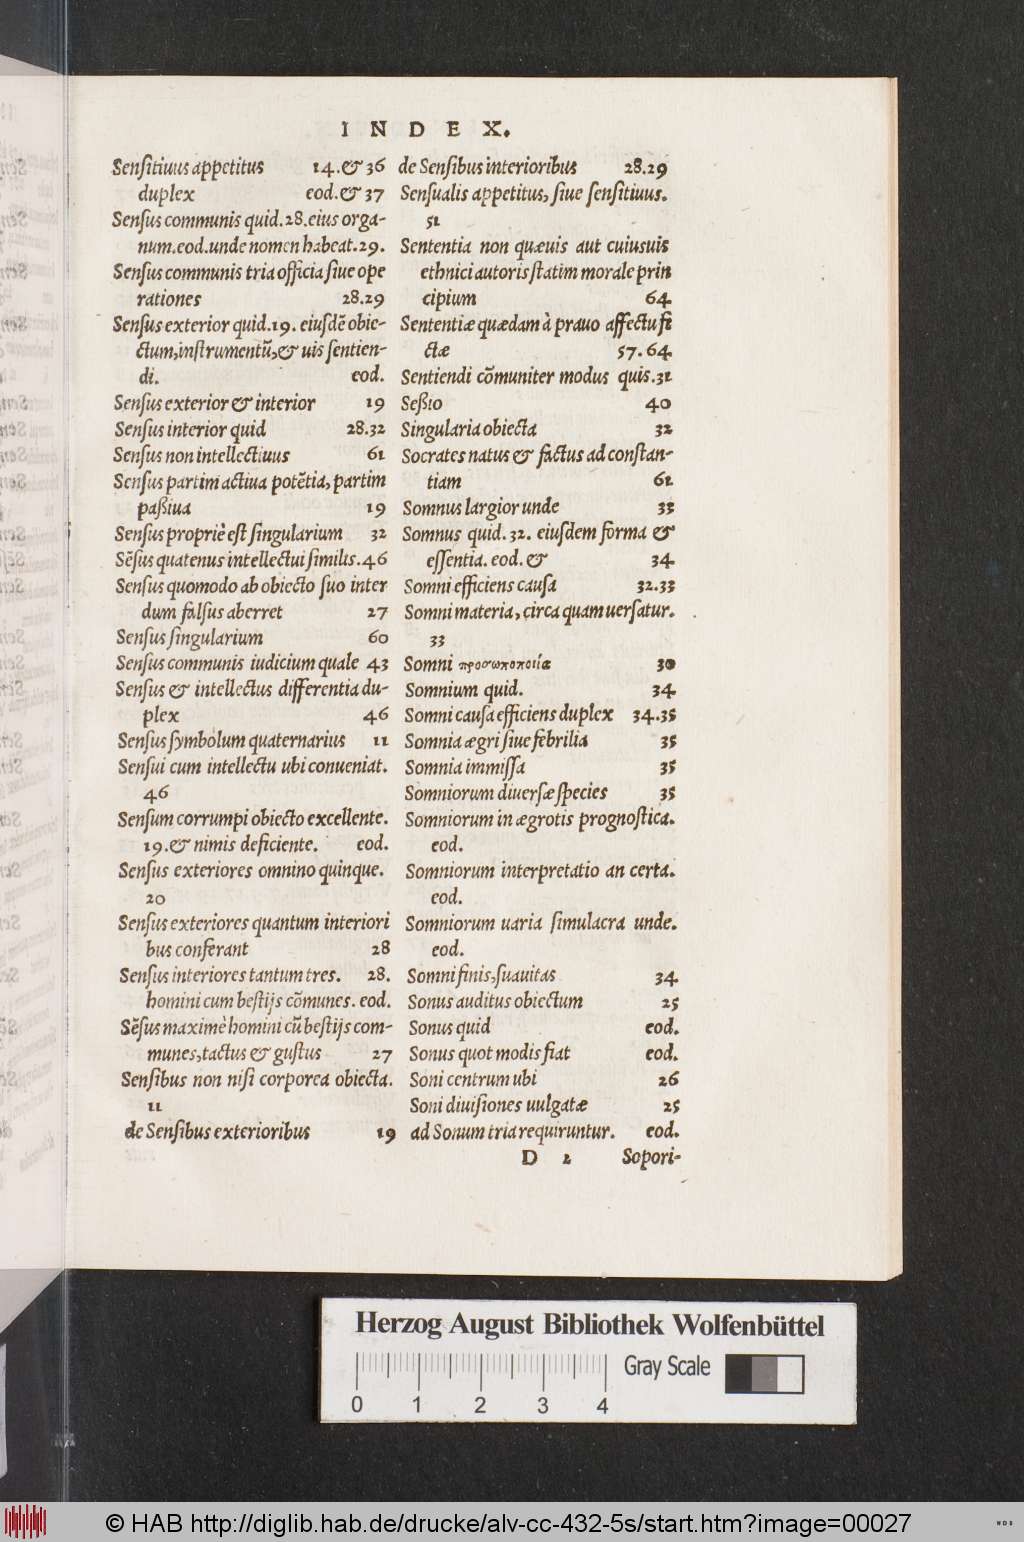 INDEX.
Senſitiuus appetitus 14.& 36
duplex eod.& 37
Senſus communis quid.28.eius orga-
num.eod.unde nomen habeat.29.
Senſus communis tria officia ſiue ope
rationes 28.29
Senſus exterior quid.19. eiuſdē obie-
ctum,inſtrumentū,& uis ſentien-
di. eod.
Senſus exterior & interior 19
Senſus interior quid 28.32
Senſus non intellectiuus 61
Senſus partim actiua potētia, partim
paßiua 19
Senſus propriè eſt ſingularium 32
Sēſus quatenus intellectui ſimilis.46
Senſus quomodo ab obiecto ſuo inter
dum falſus aberret 27
Senſus ſingularium 60
Senſus communis iudicium quale 43
Senſus & intellectus differentia du-
plex 46
Senſus ſymbolum quaternarius 11
Senſui cum intellectu ubi conueniat.
46
Senſum corrumpi obiecto excellente.
19.& nimis deficiente. eod.
Senſus exteriores omnino quinque.
20
Senſus exteriores quantum interiori
bus conferant 28
Senſus interiores tantum tres. 28.
homini cum beſtijs cōmunes. eod.
Sēſus maximè homini cū beſtijs com-
munes,tactus & guſtus 27
Senſibus non niſi corporea obiecta.
11
de Senſibus exterioribus 19
de Senſibus interioribus 28.29
Senſualis appetitus, ſiue ſenſitiuus.
51
Sententia non quæuis aut cuiusuis
ethnici autoris ſtatim morale prin
cipium 64
Sententiæ quædam à prauo affectu fi
ctæ 57.64
Sentiendi cōmuniter modus quis.31
Seßio 40
Singularia obiecta 32
Socrates natus & factus ad conſtan-
tiam 61
Somnus largior unde 33
Somnus quid. 32. eiuſdem forma &
eſſentia. eod. & 34
Somni efficiens cauſa 32.33
Somni materia, circa quam uerſatur.
33
Somni προσωποποιία 30
Somnium quid. 34
Somni cauſa efficiens duplex 34.35
Somnia ægri ſiue febrilia 35
Somnia immiſſa 35
Somniorum diuerſæ ſpecies 35
Somniorum in ægrotis prognoſtica.
eod.
Somniorum interpretatio an certa.
eod.
Somniorum uaria ſimulacra unde.
eod.
Somni finis,ſuauitas 34
Sonus auditus obiectum 25
Sonus quid eod.
Sonus quot modis fiat eod.
Soni centrum ubi 26
Soni diuiſiones uulgatæ 25
ad Sonum tria requiruntur. eod.
D 2 Sopori-
Herzog August Bibliothek Wolfenbüttel
Gray Scale
0 1 2 3 4
© HAB http://diglib.hab.de/drucke/alv-cc-432-5s/start.htm?image=00027